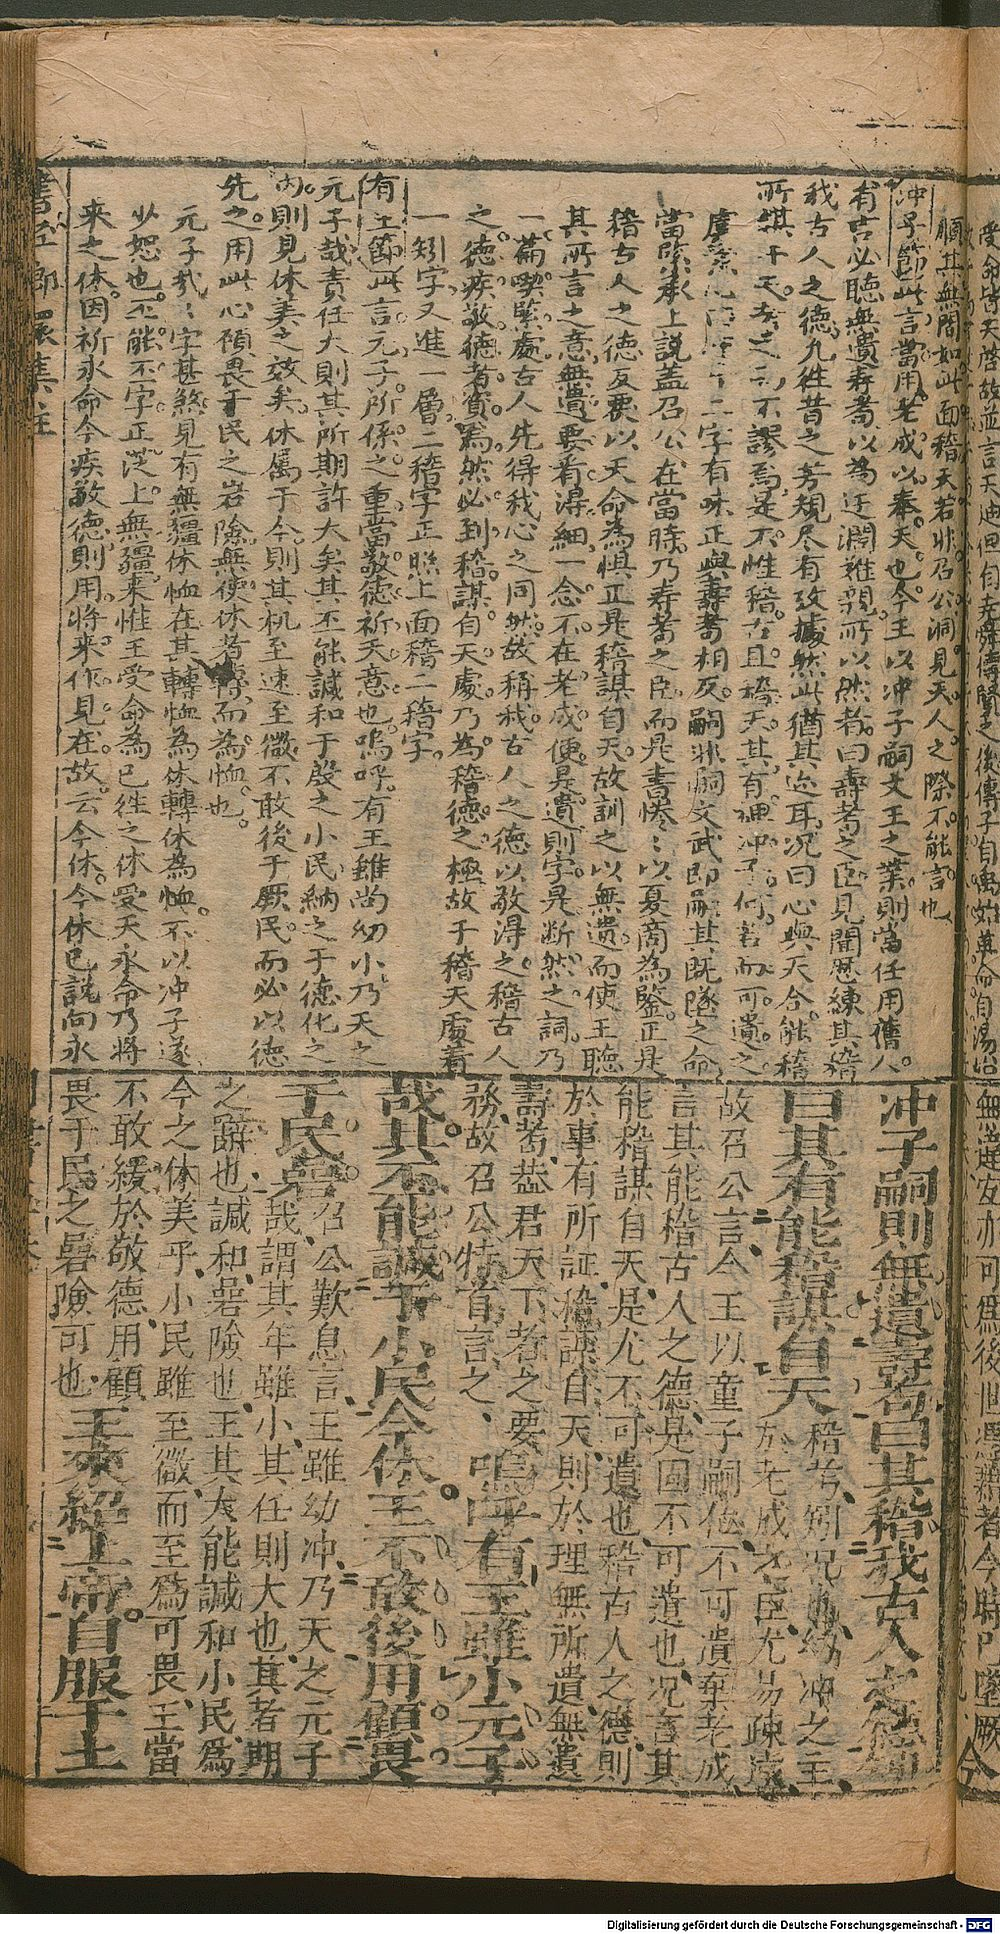 顧且無間如此面稽天若非召公洞見天人之際不能言也
冲子節此言當用老成以奉天也今王以冲子嗣文王之業則當任用舊人
有言必聽無遺壽耇以為迂濶難親所以然者曰壽考之臣見聞歷練其稽
我古人之德凡徃昔之芳規尽有攷據然此猶其迹耳况曰心與天合能稽
所謀于天考之不謬焉是不惟稽古且稽天其有裨冲子何若而可遺之
二字有味正與壽耇相反嗣非嗣文武即嗣其既墜之命
當緊承上説盖召公在當時乃壽耇之臣而是書惓〻以夏商為鑒正是
稽古人之德反要以天命為惧正是稽謀自天故訓之以無遺而使王聴
其所言之意無遺要看得細一念不在老成便是遺則字是断然之詞乃
一篇喫緊處古人先得我心之同然故稱我古人之德以敬得之稽古人
之德疾敬德者資焉然必到稽謀自天處乃為稽德之極故于稽天處着
一矧字又進一層二稽字正照上面稽二稽字
有王節此言元子所係之重當敬德祈天意也嗚呼有王雖尚幼小乃天之
元子哉責任大則其所期許大矣其丕能諴和于殷之小民納之于德化之
内則見休美之效矣休屬于今則其机至速至微不敢後于厥民而必以德
先之用此心碩畏于民之岩險無使休者轉而為恤也
元子哉三字甚煞見有無疆休恤在其轉恤為休轉休為恤不以冲子遂
少恕也丕能丕字正從上無疆來惟王受命為已徃之休受天永命乃將
來之休因祈永命今疾敬德則用將來作見在故云今休今休已説向永
冲子嗣則無遺壽耇曰其稽我古人之德矧
曰其有能稽謀自天 稽考矧况也幼冲之主於老成之臣尤易疎遠
故召公言今王以童子嗣位不可遺棄老成
言其能稽古人之德是固不可遺也况言其
能稽謀自天是尤不可遺也稽古人之德則
於事有所証稽謀自天則於理無所遺無遺
壽耇葢君天下者之要
務故召公特首言之 嗚呼有王雖小元子
哉其丕能諴于小民今休王不敢後用顧畏
于民碞 召公歎息言王雖幼冲乃天之元子哉謂其年雖小其任則大也其者期
之辭也諴和碞險也王其大能諴和小民爲
今之休美乎小民雖至微而至爲可畏王當
不敢緩於敬德用顧
畏于民之碞險可也 王來紹上帝自服于土
Digitalisierung gefördert durch die Deutsche Forschungsgemeinschaft - DFG